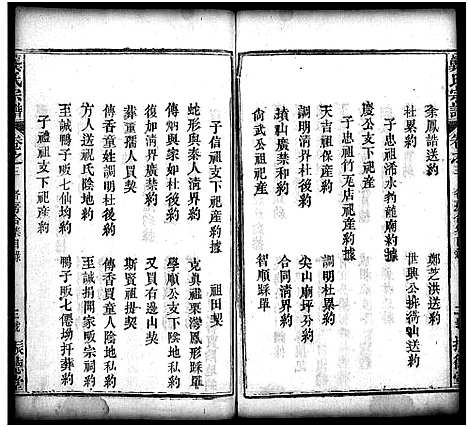 余鳳誥送約
鄭芝洪送約
杜界約
世興公拚蕩山送約
子忠祖浠水豹龍廟祀產約據
子忠祖竹瓦店祀產約據
慶公支下祀產約
天吉祖保產約
調明杜累約
調明清界杜後約
尖山廟坪分約
墳山廣禁約
合同清界約
尙武公祀產約
智順踩單
子信祖支下祀產約據
祖田契
蛇形與秦人清界約
克眞祖栗灣鳳形踩單
後如清界廣禁約
學順公支下陰地私約
傳炳與家杜後約
又買右邊山契
葬董擄人買契
斯賢祖掛契
傳香童姓調明杜後約
傳香買童人陰地私約
方人送祝氏陰地約
至誠捐開家畈宗祠約
至誠鴨子畈七仙坳約
鴨子畈七僊坳扦葬約
子禮祖支下祀產約
氏宗譜
卷之三
振德堂